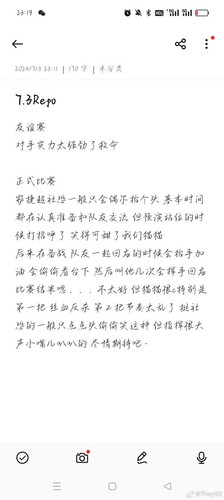 23:19
2024/7/3 23:11 | 170字 | 未分类
7.3Repo
友谊赛
对手实力太强劲了救命
正式比赛
很捷超社恐一般只会偶尔抬个头 基本时间
都在认真准备和队友交流 但预演站位的时
候打招呼了 笑得可甜了我们猫猫
后来在备战 队友一起回应的时候会抬手加
油 会偷偷看台下 然后叫他几次会挥手回应
比赛结果嗯...不太好 但猫猫很c特别是
第一把 丝血反杀 第2把节奏太乱了 挺社
恐的一般只点点头偷偷笑这种 但指挥很大
声小嘴儿叭叭的 尽情期待吧~